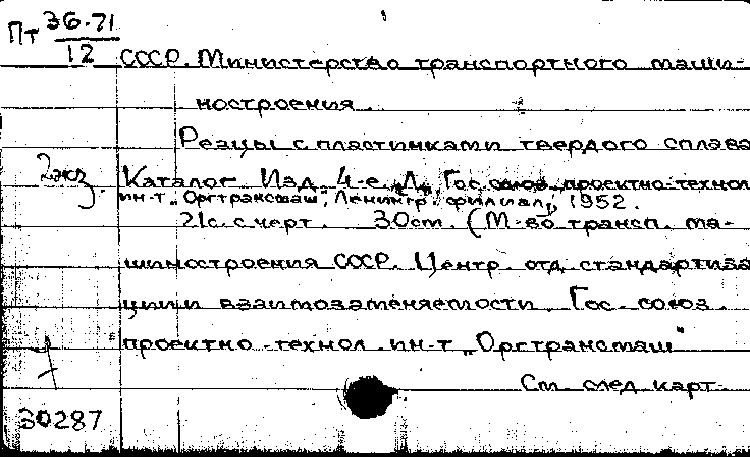 Пт 36-71
12
СССР. Министерство транспортного маши-
ностроения.
Резцы с пластинками твердого сплава
2 экз.
Каталог. Изд. 4-е. Л., Гос. союз. проектно-технол.
ин-т "Оргтрансмаш", Ленингр. филиал, 1952.
21с. с черт. 30см. (М-во трансп. ма-
шиностроения СССР. Центр. отд. стандартиза
ции и взаимозаменяемости. Гос. союз.
проектно-технол. ин-т "Оргтрансмаш"
См. след. карт.
30287